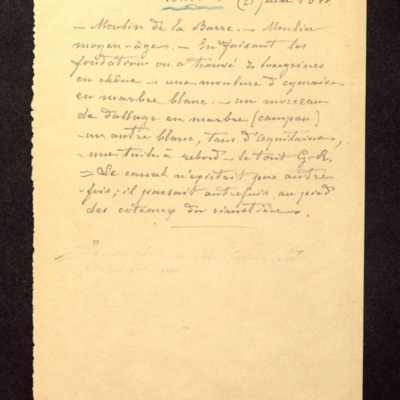 (21 juin
— Moulin de la Barre. — Moulin
moyen-âge. — En faisant les
fondations on a trouvé de longrines
en chêne — une moulure d'cymaise
en marbre blanc. — un morceau
de dallage en marbre (campan)
— un autre blanc, tous d'Aquitaine,
— une tuile à rebord — le tout G-R.
= Le canal n'existait pas autre
fois; il passait autrefois au pied
des coteaux du cimetière.